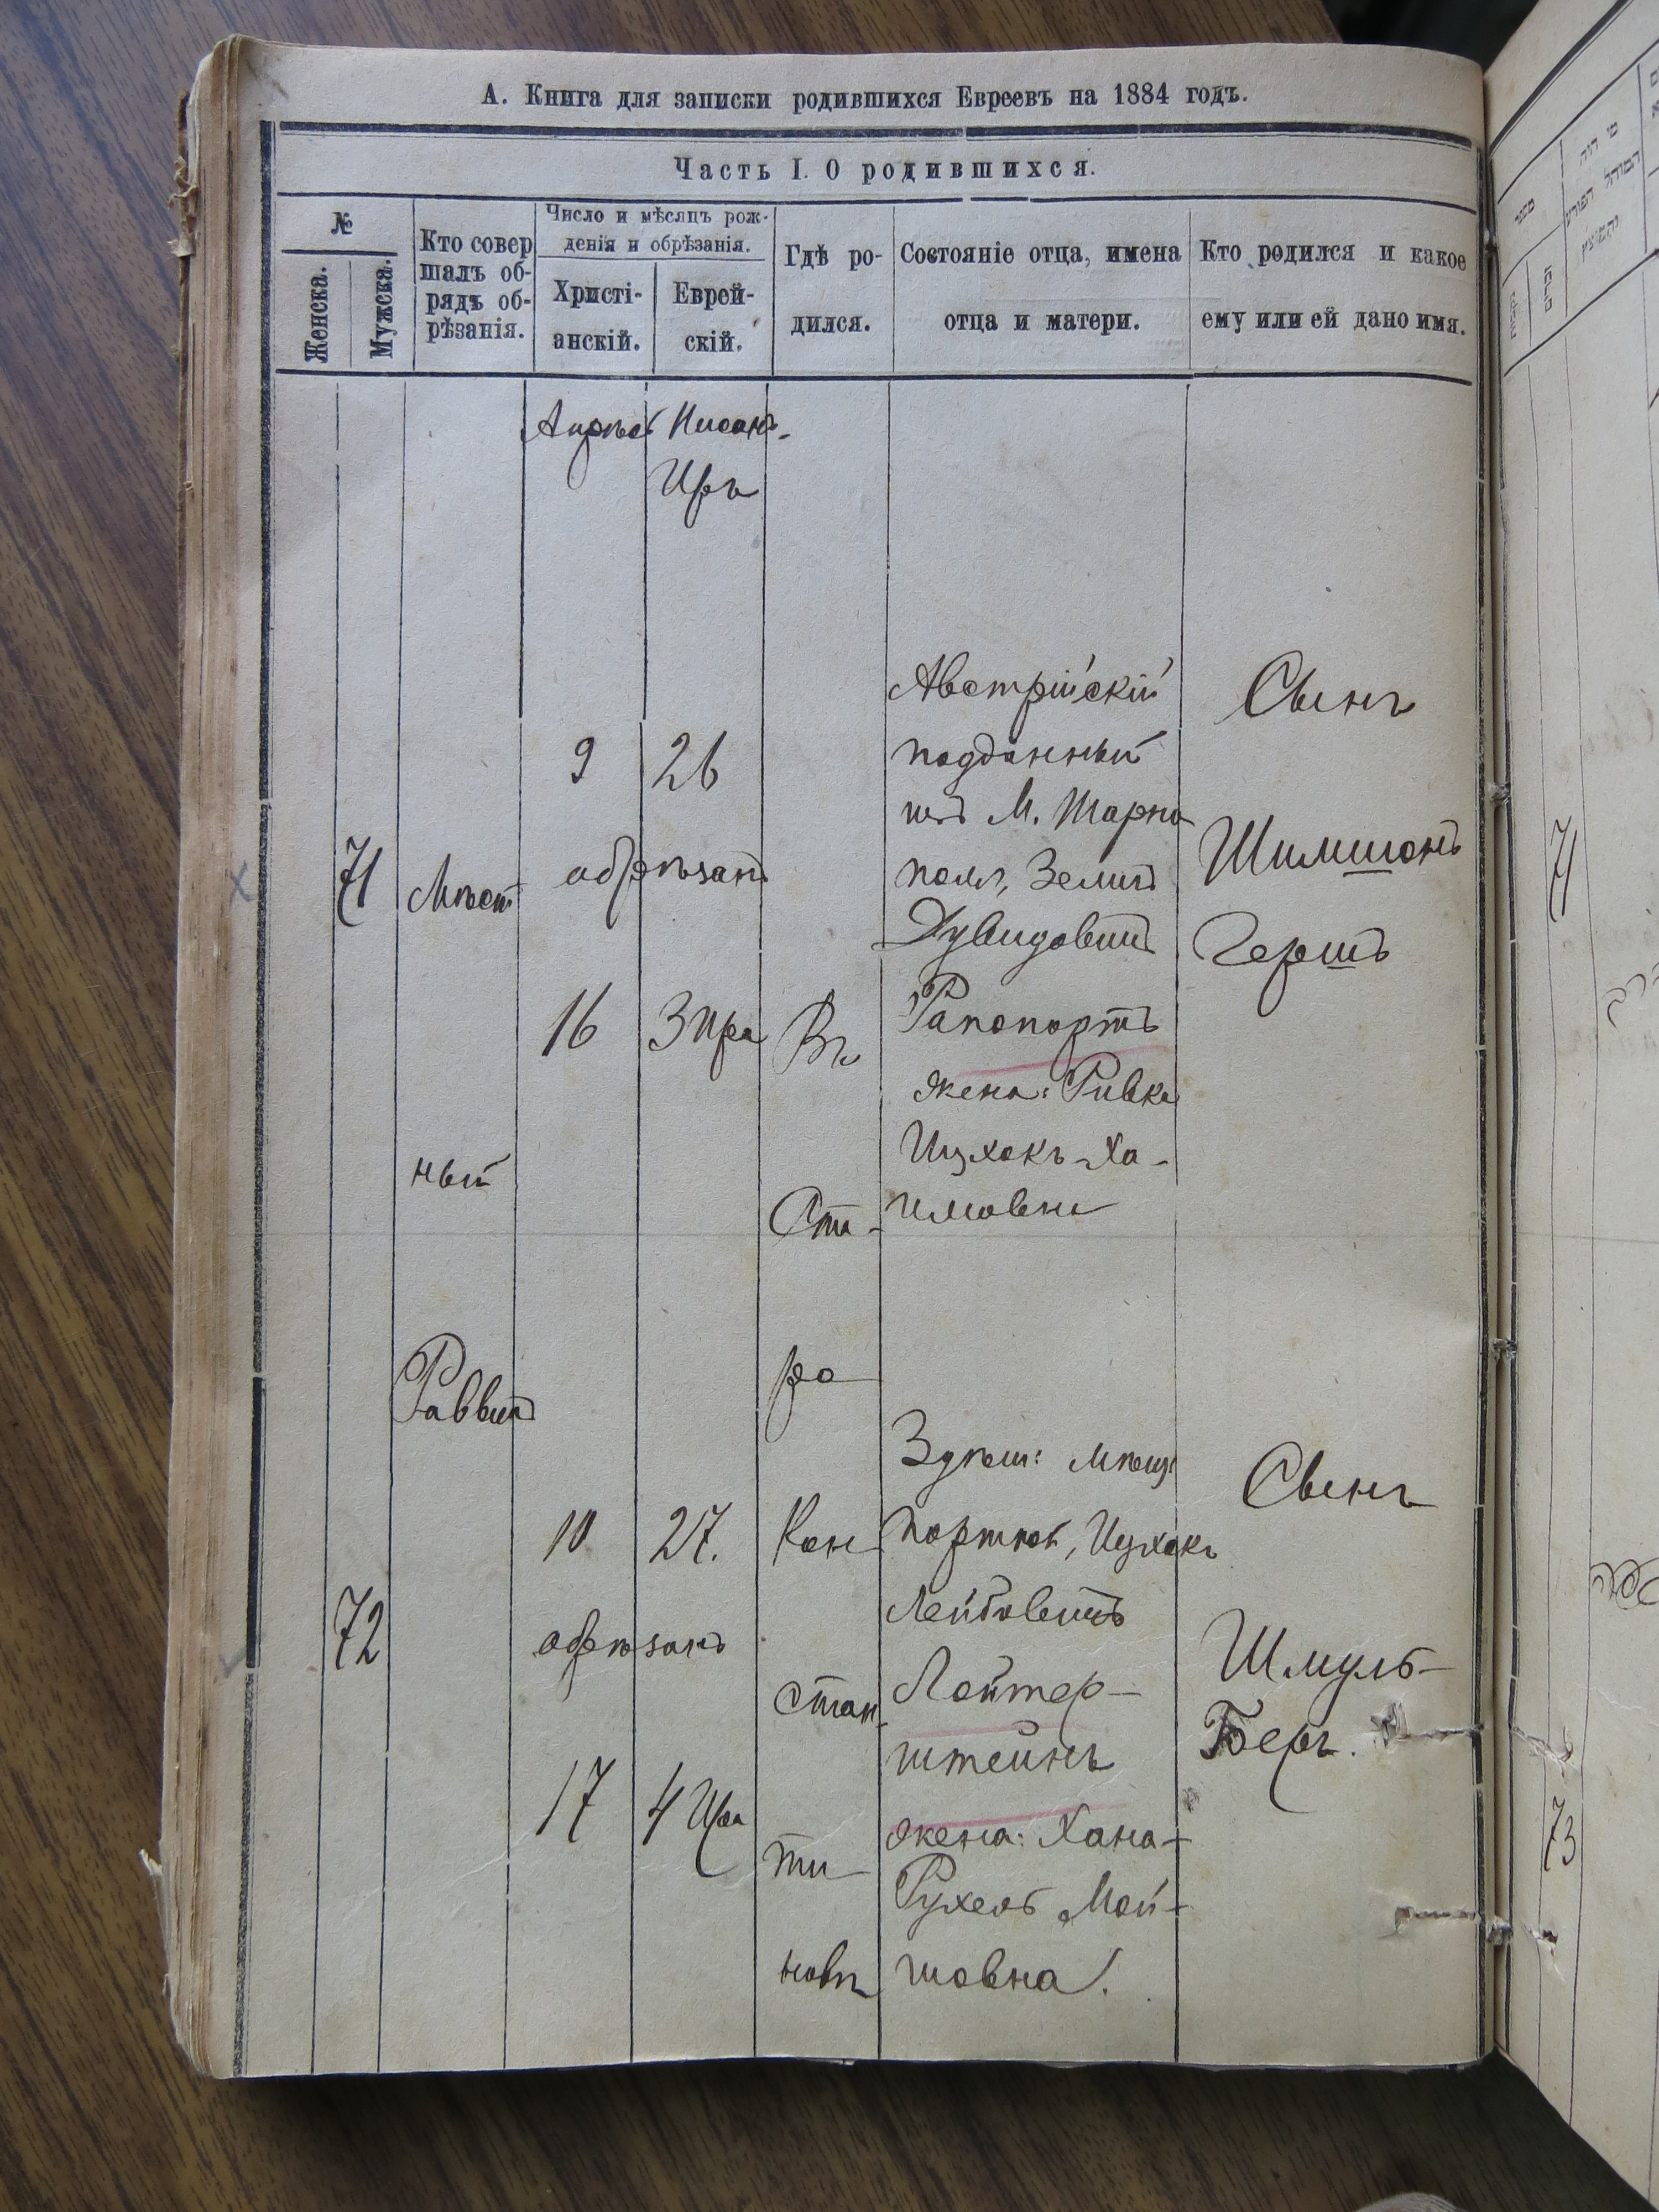 А. Книга для записки родившихся Евреевъ на 1884 годъ.
Часть I. О родившихся.
№
Женска.
Мужска.
Кто совер
шалъ об-
рядъ об-
рѣзанія.
Число и мѣсяцъ рож-
денія и обрѣзанія.
Христі-
анскій.
Еврей-
скій.
Гдѣ ро-
дился.
Состояніе отца, имена
отца и матери.
Кто родился и какое
ему или ей дано имя.
Апрѣль Нисонъ-
Иръ
71
Мѣст
ный
Раввинъ
9 26
обрѣзанъ
16 3 Ира
Въ
Ста-
ро
Кон
стан
ти
новѣ
Австрійскій
подданный
изъ М. Тарно
поля, Зелигъ
Дувидовичъ
Рапопортъ
жена: Ривка
Ицхокъ-Ха-
имовна
Сынъ
Шимшонъ
Гершъ
72
10 27.
обрѣзанъ
17 4 Ира
Здѣш: мѣщ:
портной, Ицхокъ
Лейбовичъ
Лойтер-
штейнъ
жена: Хана-
Рухель Мой-
шовна.
Сынъ
Шмуль-
Беръ.
71
73